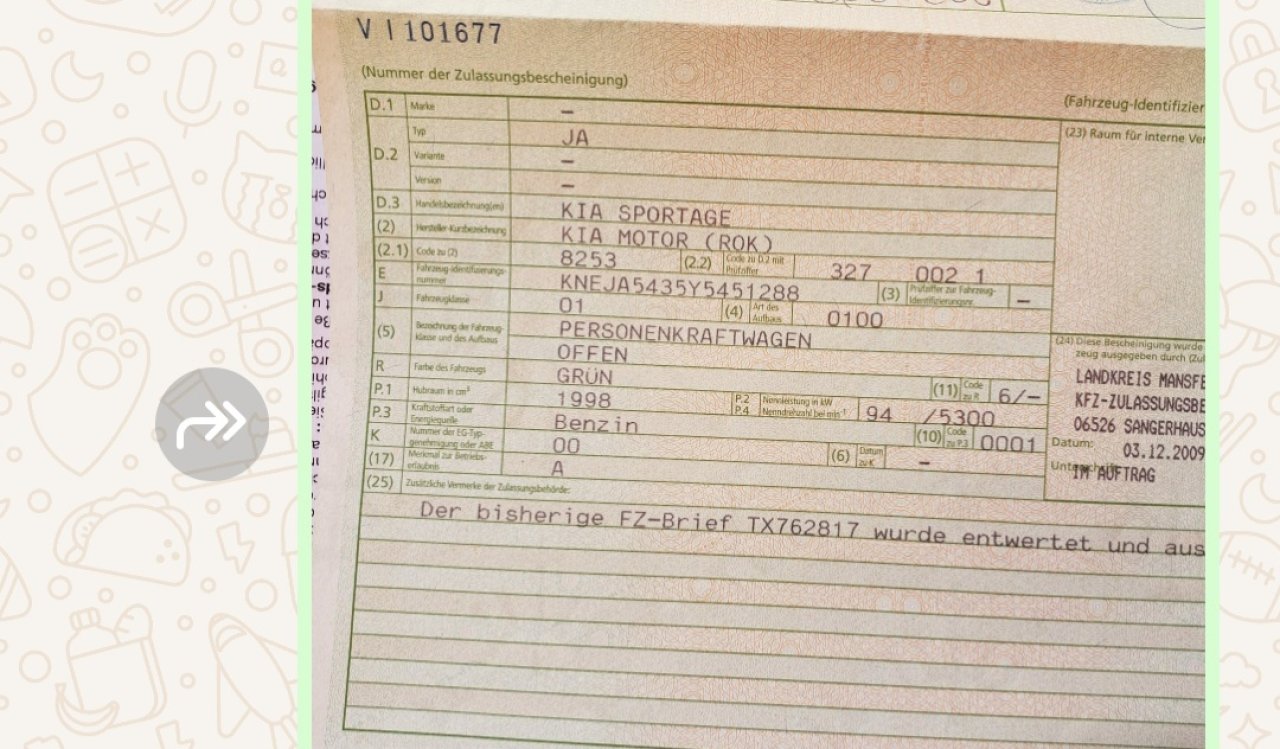 V I 101677
(Nummer der Zulassungsbescheinigung)
(Fahrzeug-Identifizier
D.1 Marke –
(23) Raum für interne Ver
D.2 Typ JA
Variante –
Version –
D.3 Handelsbezeichnung(en) KIA SPORTAGE
(2) Hersteller-Kurzbezeichnung KIA MOTOR (ROK)
(2.1) Code zu (2) 8253 (2.2) Code zu D.2 mit Prüfziffer 327 002 1
E Fahrzeug-Identifizierungs-nummer KNEJA5435Y5451288 (3) Prüfziffer zur Fahrzeug-Identifizierungsnr. –
J Fahrzeugklasse 01 (4) Art des Aufbaus 0100
(5) Bezeichnung der Fahrzeug-klasse und des Aufbaus PERSONENKRAFTWAGEN
OFFEN
(24) Diese Bescheinigung wurde
zeug ausgegeben durch (Zul
R Farbe des Fahrzeugs GRÜN (11) Code zu R 6/–
LANDKREIS MANSFE
P.1 Hubraum in cm³ 1998 P.2 P.4 Nennleistung in kW Nenndrehzahl bei min⁻¹ 94 /5300
KFZ-ZULASSUNGSBE
P.3 Kraftstoffart oder Energiequelle Benzin (10) Code zu P.3 0001
06526 SANGERHAUS
K Nummer der EG-Typ-genehmigung oder ABE 00 (6) Datum zu K –
Datum: 03.12.2009
(17) Merkmal zur Betriebs-erlaubnis A
Unterschrift
IM AUFTRAG
(25) Zusätzliche Vermerke der Zulassungsbehörde:
Der bisherige FZ-Brief TX762817 wurde entwertet und aus